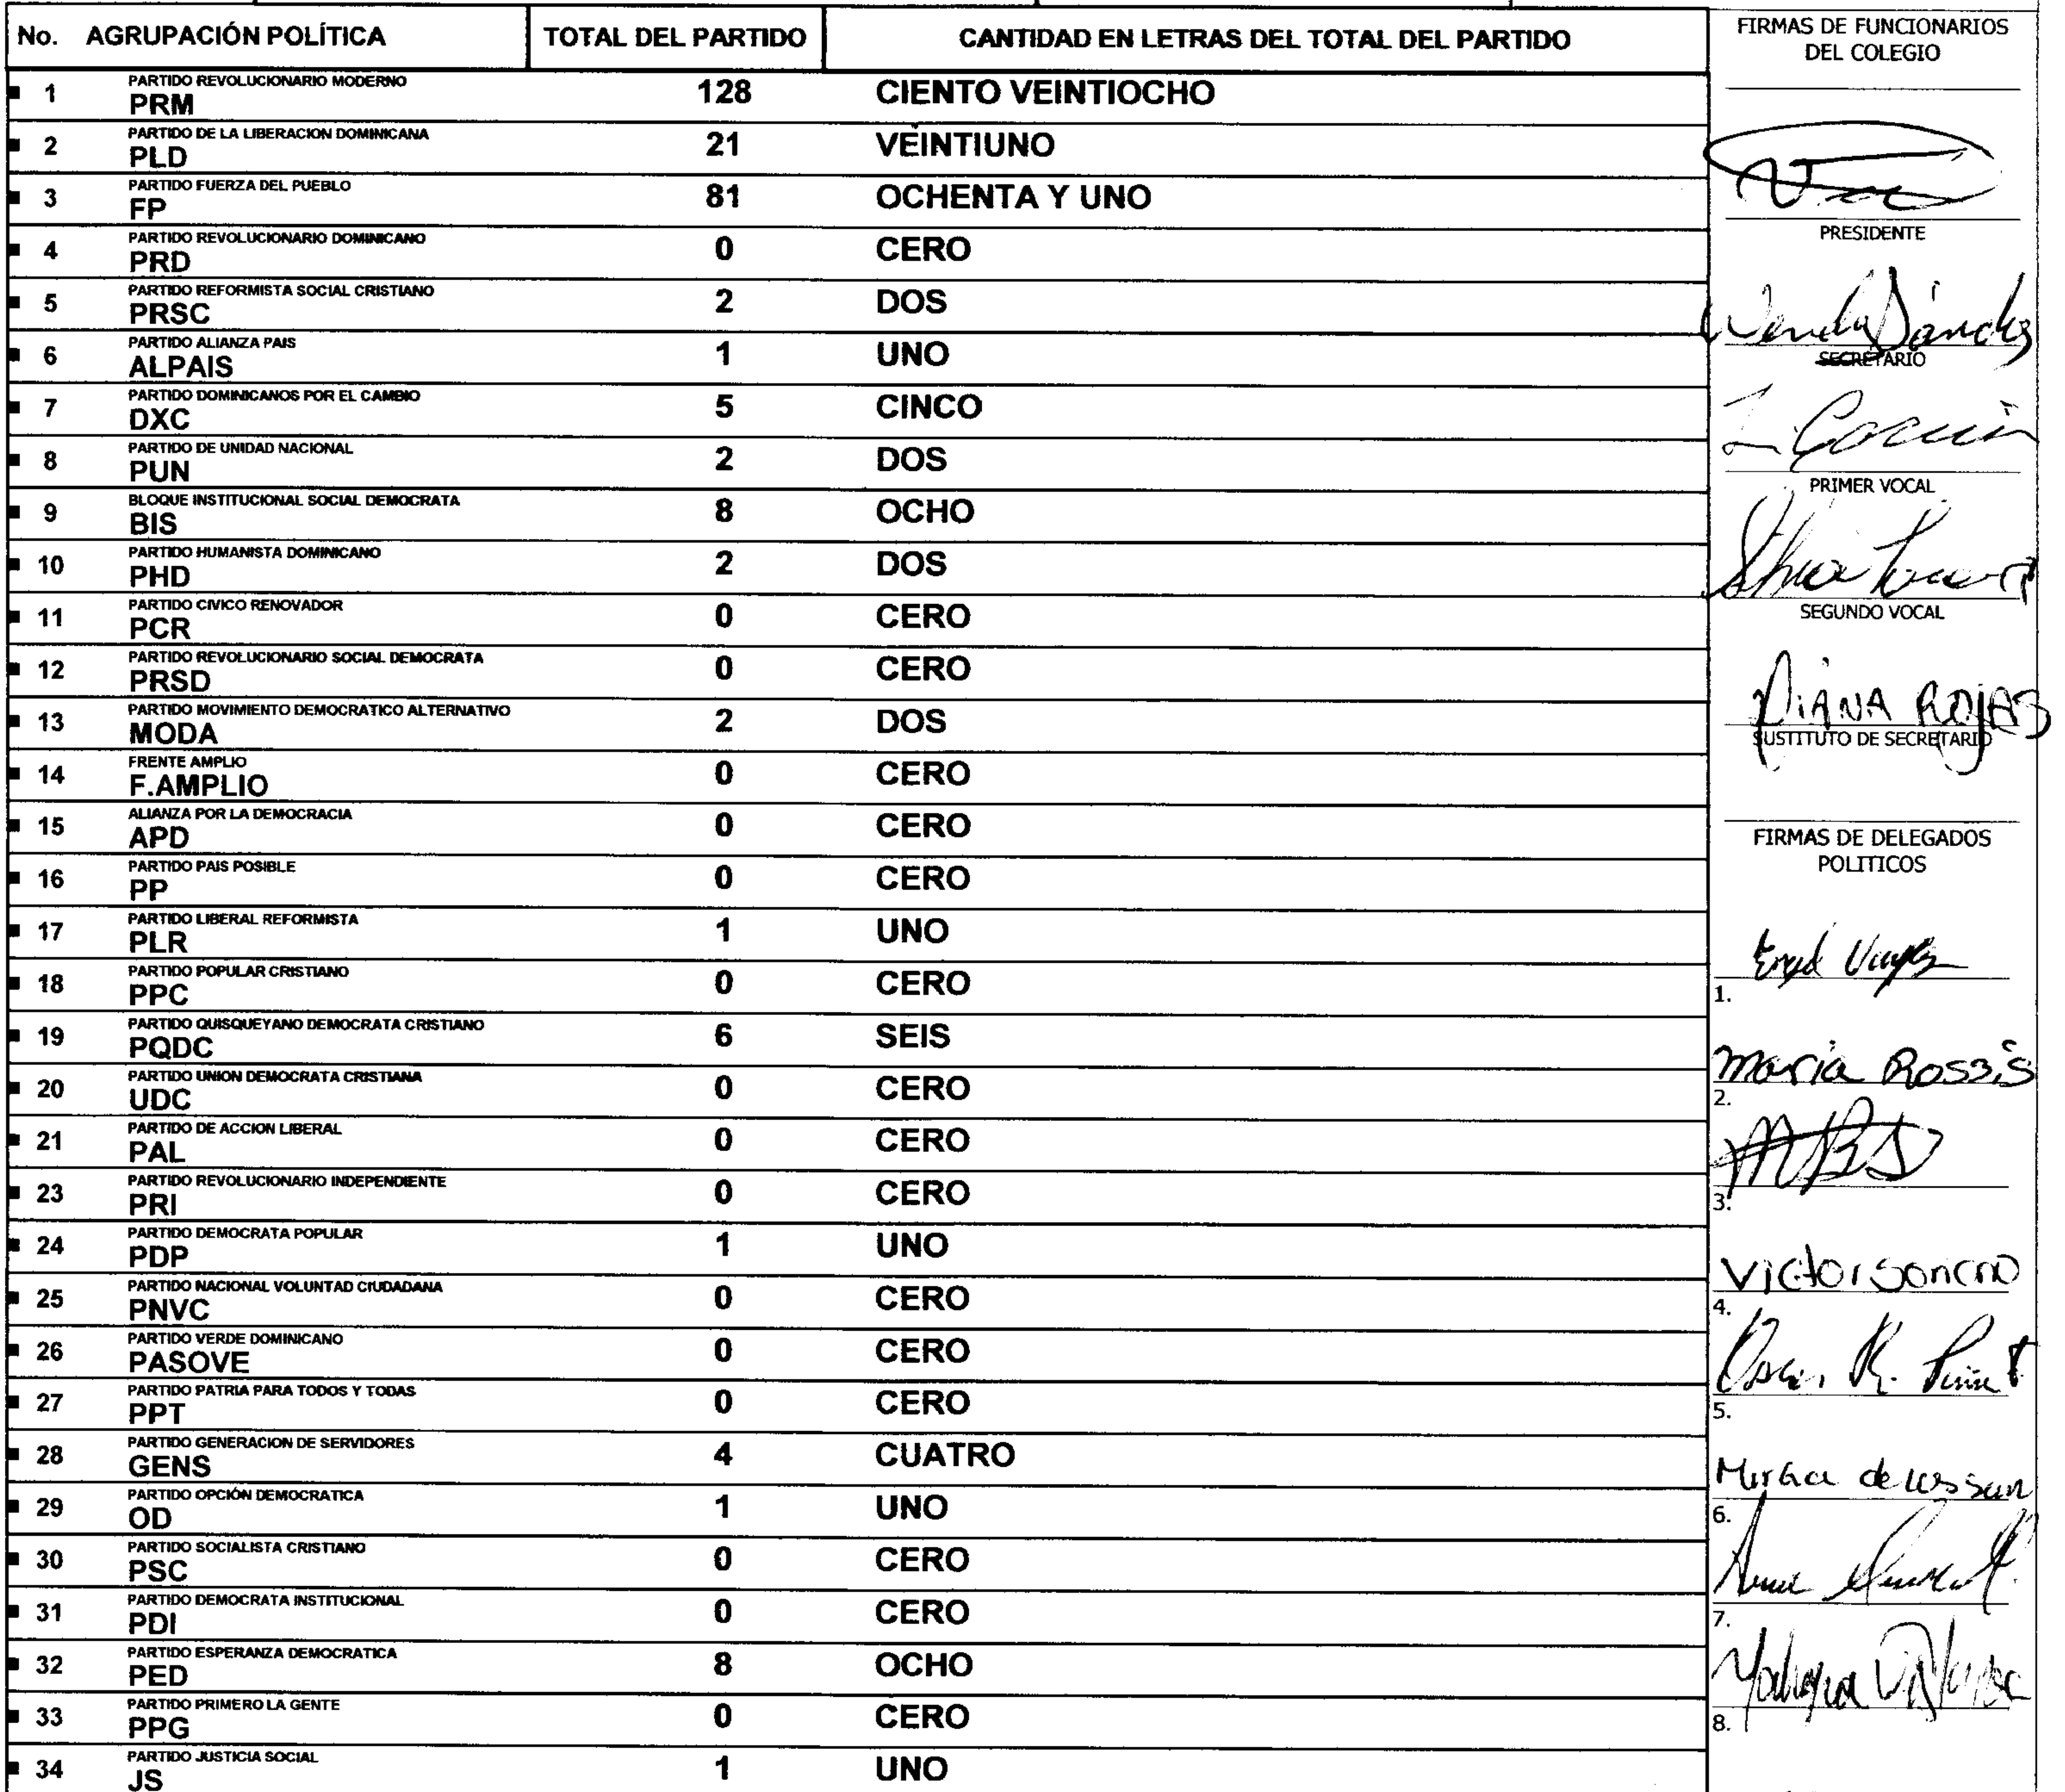 No. AGRUPACIÓN POLÍTICA TOTAL DEL PARTIDO CANTIDAD EN LETRAS DEL TOTAL DEL PARTIDO
1 PARTIDO REVOLUCIONARIO MODERNO
PRM 128 CIENTO VEINTIOCHO
2 PARTIDO DE LA LIBERACION DOMINICANA
PLD 21 VEINTIUNO
3 PARTIDO FUERZA DEL PUEBLO
FP 81 OCHENTA Y UNO
4 PARTIDO REVOLUCIONARIO DOMINICANO
PRD 0 CERO
5 PARTIDO REFORMISTA SOCIAL CRISTIANO
PRSC 2 DOS
6 PARTIDO ALIANZA PAIS
ALPAIS 1 UNO
7 PARTIDO DOMINICANOS POR EL CAMBIO
DXC 5 CINCO
8 PARTIDO DE UNIDAD NACIONAL
PUN 2 DOS
9 BLOQUE INSTITUCIONAL SOCIAL DEMOCRATA
BIS 8 OCHO
10 PARTIDO HUMANISTA DOMINICANO
PHD 2 DOS
11 PARTIDO CIVICO RENOVADOR
PCR 0 CERO
12 PARTIDO REVOLUCIONARIO SOCIAL DEMOCRATA
PRSD 0 CERO
13 PARTIDO MOVIMIENTO DEMOCRATICO ALTERNATIVO
MODA 2 DOS
14 FRENTE AMPLIO
F.AMPLIO 0 CERO
15 ALIANZA POR LA DEMOCRACIA
APD 0 CERO
16 PARTIDO PAIS POSIBLE
PP 0 CERO
17 PARTIDO LIBERAL REFORMISTA
PLR 1 UNO
18 PARTIDO POPULAR CRISTIANO
PPC 0 CERO
19 PARTIDO QUISQUEYANO DEMOCRATA CRISTIANO
PQDC 6 SEIS
20 PARTIDO UNION DEMOCRATA CRISTIANA
UDC 0 CERO
21 PARTIDO DE ACCION LIBERAL
PAL 0 CERO
23 PARTIDO REVOLUCIONARIO INDEPENDIENTE
PRI 0 CERO
24 PARTIDO DEMOCRATA POPULAR
PDP 1 UNO
25 PARTIDO NACIONAL VOLUNTAD CIUDADANA
PNVC 0 CERO
26 PARTIDO VERDE DOMINICANO
PASOVE 0 CERO
27 PARTIDO PATRIA PARA TODOS Y TODAS
PPT 0 CERO
28 PARTIDO GENERACION DE SERVIDORES
GENS 4 CUATRO
29 PARTIDO OPCIÓN DEMOCRATICA
OD 1 UNO
30 PARTIDO SOCIALISTA CRISTIANO
PSC 0 CERO
31 PARTIDO DEMOCRATA INSTITUCIONAL
PDI 0 CERO
32 PARTIDO ESPERANZA DEMOCRATICA
PED 8 OCHO
33 PARTIDO PRIMERO LA GENTE
PPG 0 CERO
34 PARTIDO JUSTICIA SOCIAL
JS 1 UNO
FIRMAS DE FUNCIONARIOS
DEL COLEGIO
PRESIDENTE
Sánchez
SECRETARIO
PRIMER VOCAL
SEGUNDO VOCAL
DIANA ROJAS
SUSTITUTO DE SECRETARIO
FIRMAS DE DELEGADOS
POLITICOS
1.
Maria Rossis
2.
3.
Victor
4.
Oscar R.
5.
6.
7.
8.